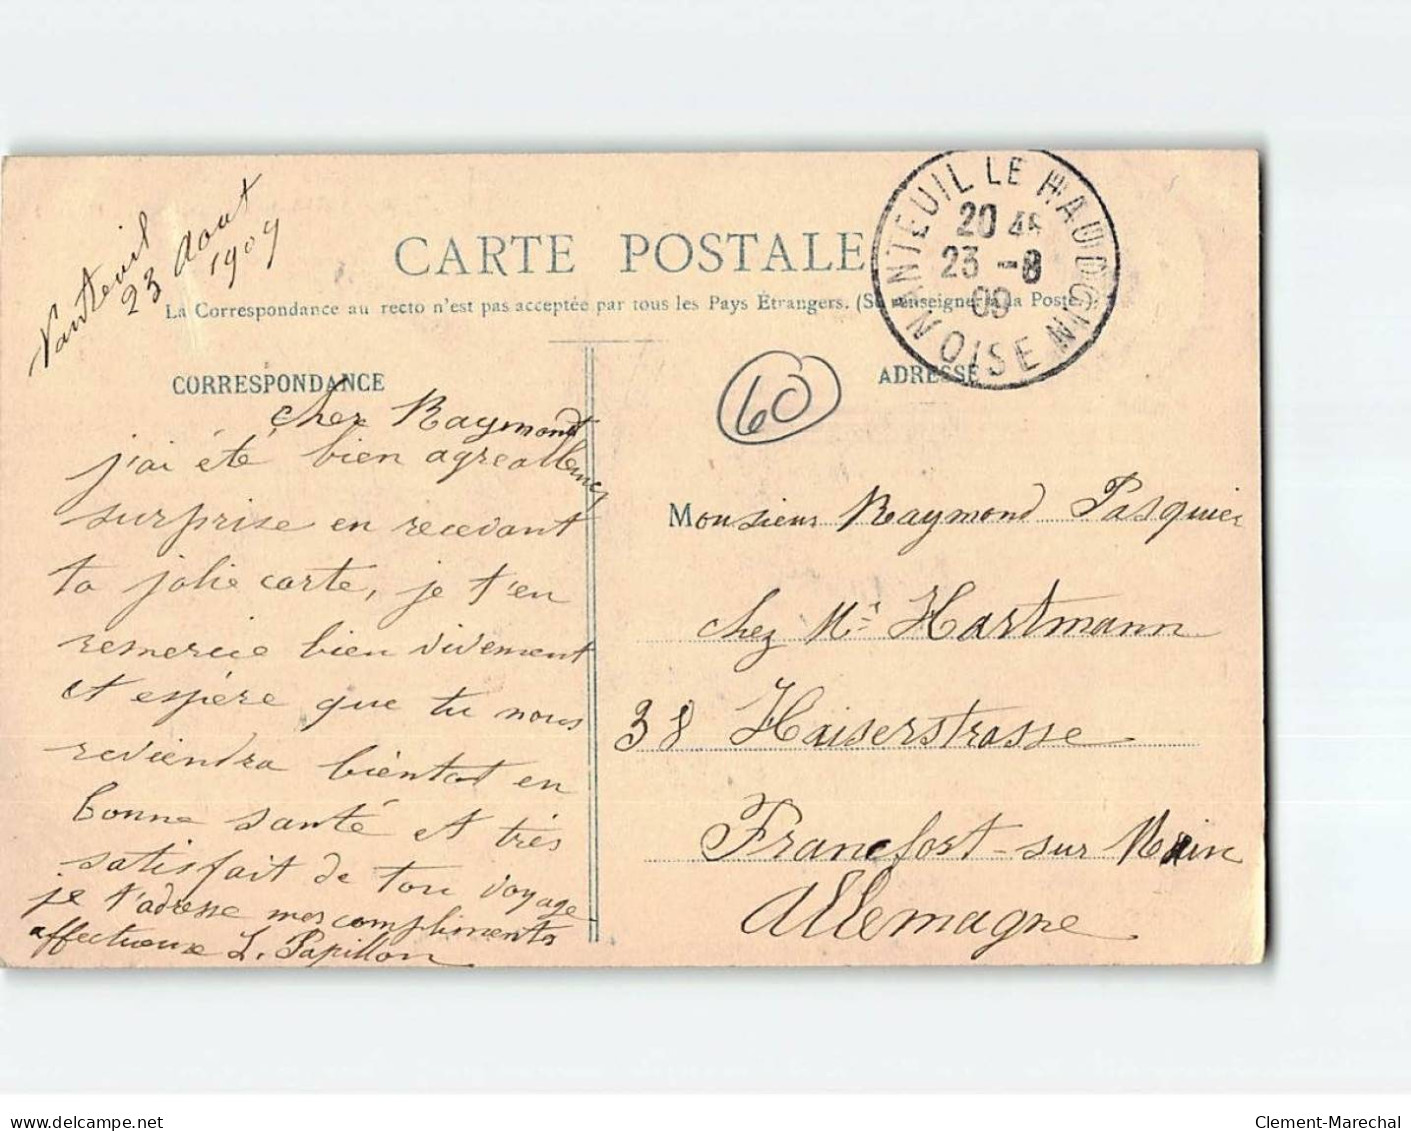 Nanteuil
23 Aout
1909
CARTE POSTALE
La Correspondance au recto n'est pas acceptée par tous les Pays Étrangers. (Se renseigner à la Poste)
NANTEUIL LE HAUDOUIN
20 45
23 -8
09
OISE
CORRESPONDANCE
ADRESSE
60
cher Raymond
j'ai été bien agreablement
surprise en recevant
ta jolie carte, je t'en
remercie bien vivement
et espère que tu nous
reviendra bientot en
bonne santé et très
satisfait de ton voyage
je t'adresse mes compliments
affectueux L. Papillon
Monsieur Raymond Pasquier
chez Mr Hartmann
38 Kaiserstrasse
Francfort-sur Mein
Allemagne
delcampe.net
Clement-Marechal